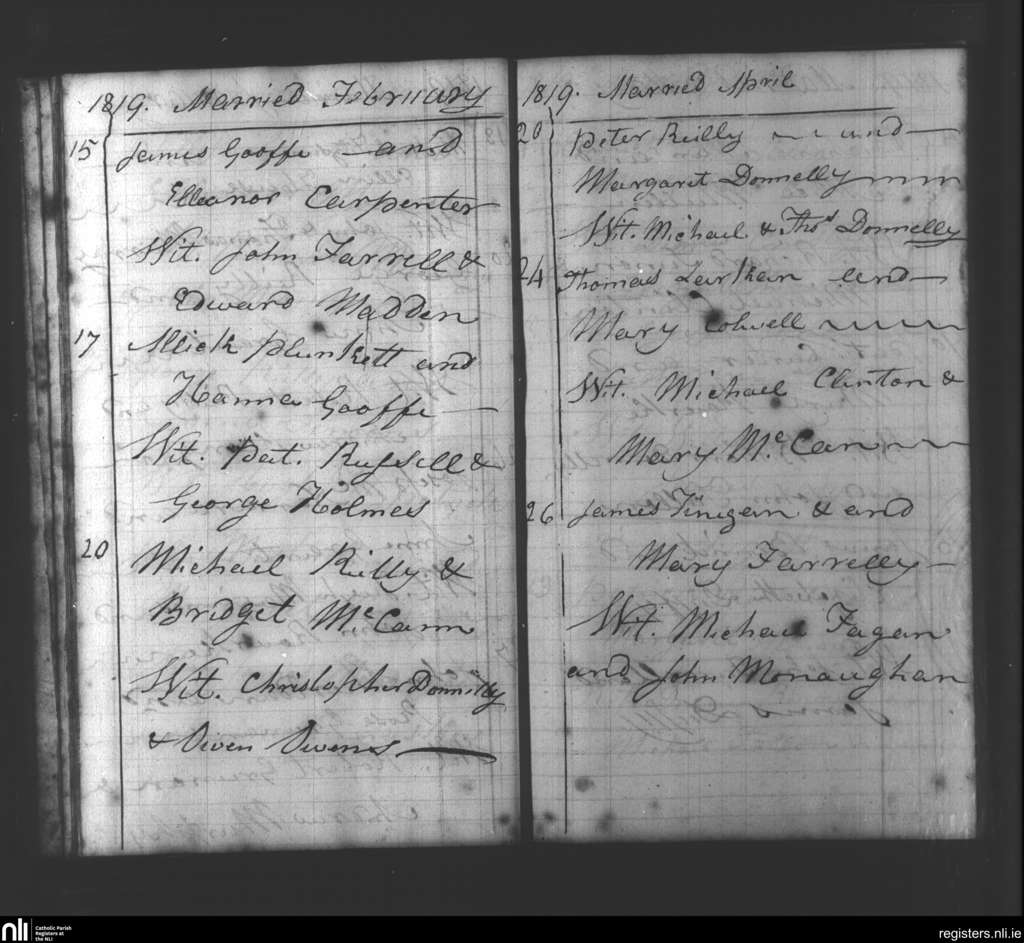 1819. Married February
15 James Gooffe and
Elleanor Carpenter
Wit. John Farrell &
Edward Madden
17 Mick Plunkett and
Hanna Gooffe
Wit. Pat. Russell &
George Holmes
20 Michael Rilly &
Bridget McCann
Wit. Christopher Donnilly
& Owen Owens
1819. Married April
20 Peter Reilly and
Margaret Donnelly
Wit. Michael & Thos Donnelly
24 Thomas Larkan and
Mary Colwell
Wit. Michael Clinton &
Mary Mc. Can
26 James Finegan & and
Mary Farrelly
Wit. Michael Fagan
and John Monaughan
nli Catholic Parish
Registers at
the NLI
registers.nli.ie